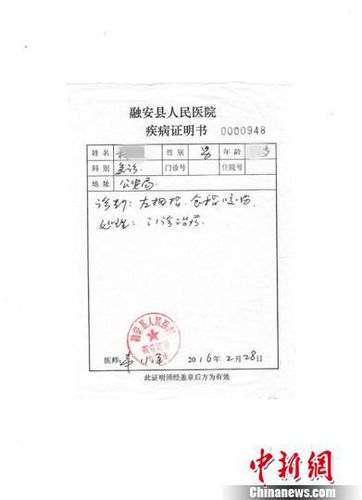 融安县人民医院
疾病证明书 0000948
姓名 性别 男 年龄
科别 急诊 门诊号 住院号
地址 公安局
诊断：左拇指、食指咬伤
处理：门诊治疗.
融安县人民医院
医师： 2016年2月28日
此证明须经盖章后方为有效
中新网
Chinanews.com